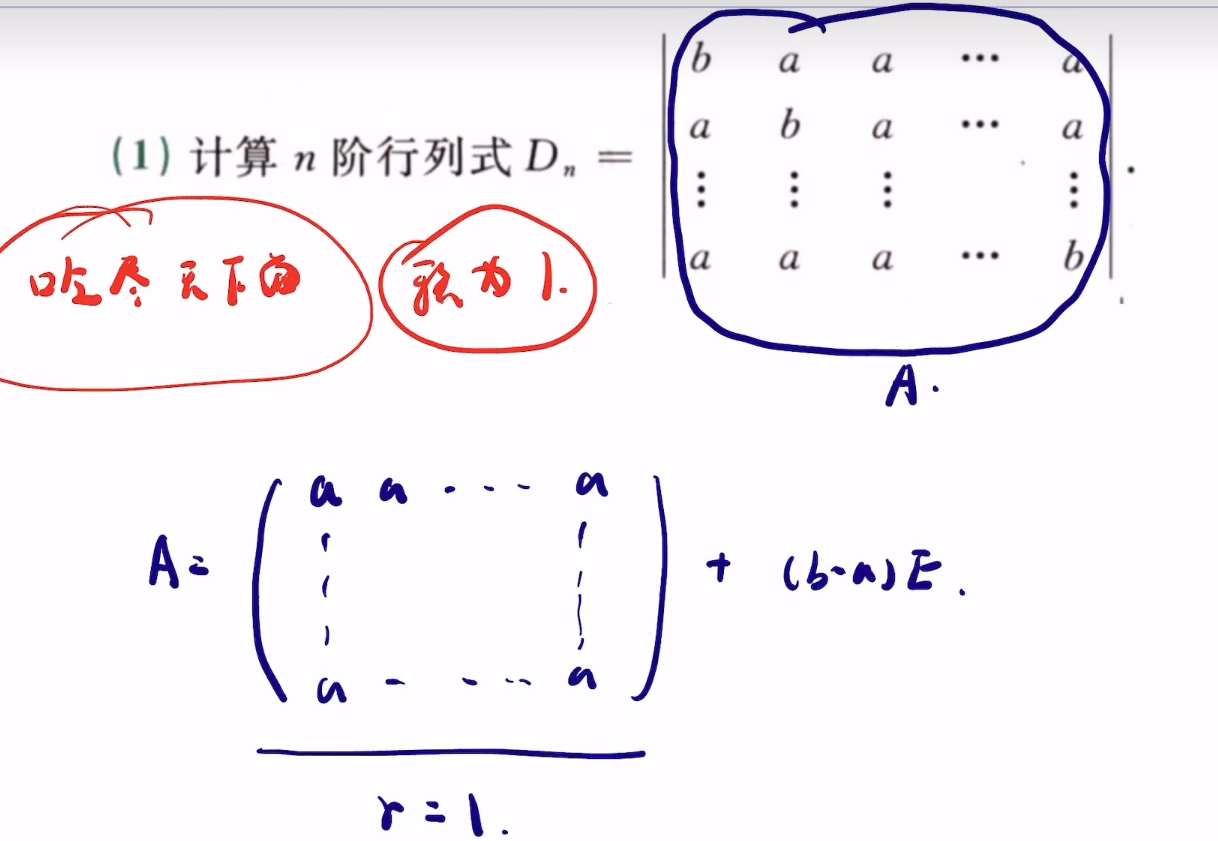 (1) 计算 n 阶行列式 Dₙ =
b a a ⋯ a
a b a ⋯ a
⋮ ⋮ ⋮ ⋮
a a a ⋯ b
.
吃尽天下
秩为1.
A.
A= ( a a ⋯ a
a ⋯ a ) + (b-a)E.
r=1.